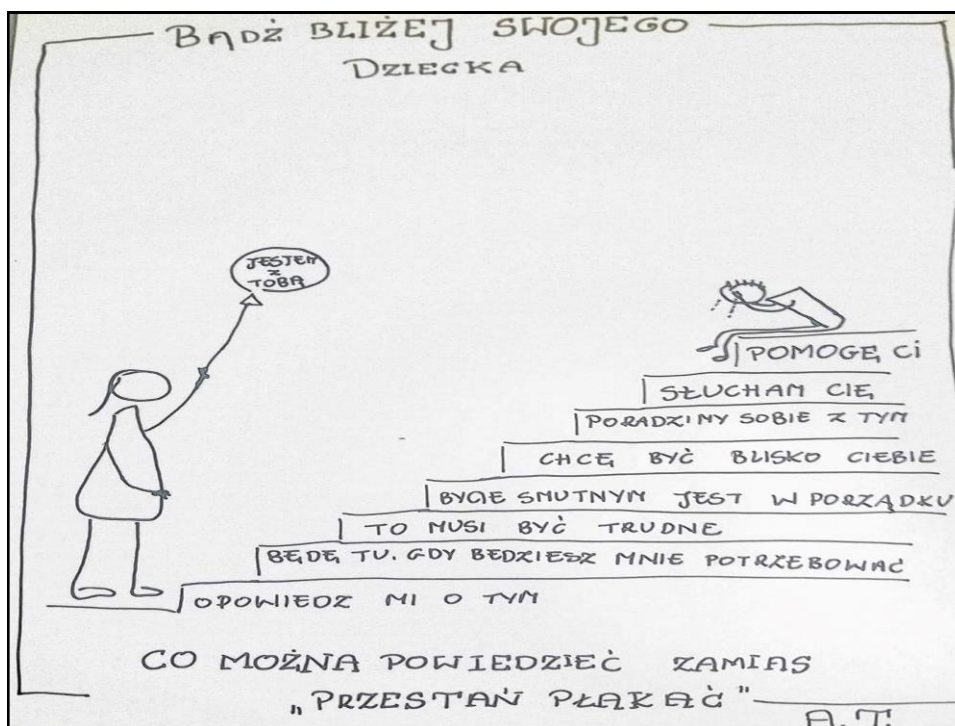 BĄDŹ BLIŻEJ SWOJEGO
DZIECKA
JESTEM
Z
TOBĄ
POMOGĘ CI
SŁUCHAM CIĘ
PORADZIMY SOBIE Z TYM
CHCĘ BYĆ BLISKO CIEBIE
BYCIE SMUTNYM JEST W PORZĄDKU
TO MUSI BYĆ TRUDNE
BĘDĘ TU. GDY BĘDZIESZ MNIE POTRZEBOWAĆ
OPOWIEDZ MI O TYM
CO MOŻNA POWIEDZIEĆ ZAMIAS
„PRZESTAŃ PŁAKAĆ"
A.T.